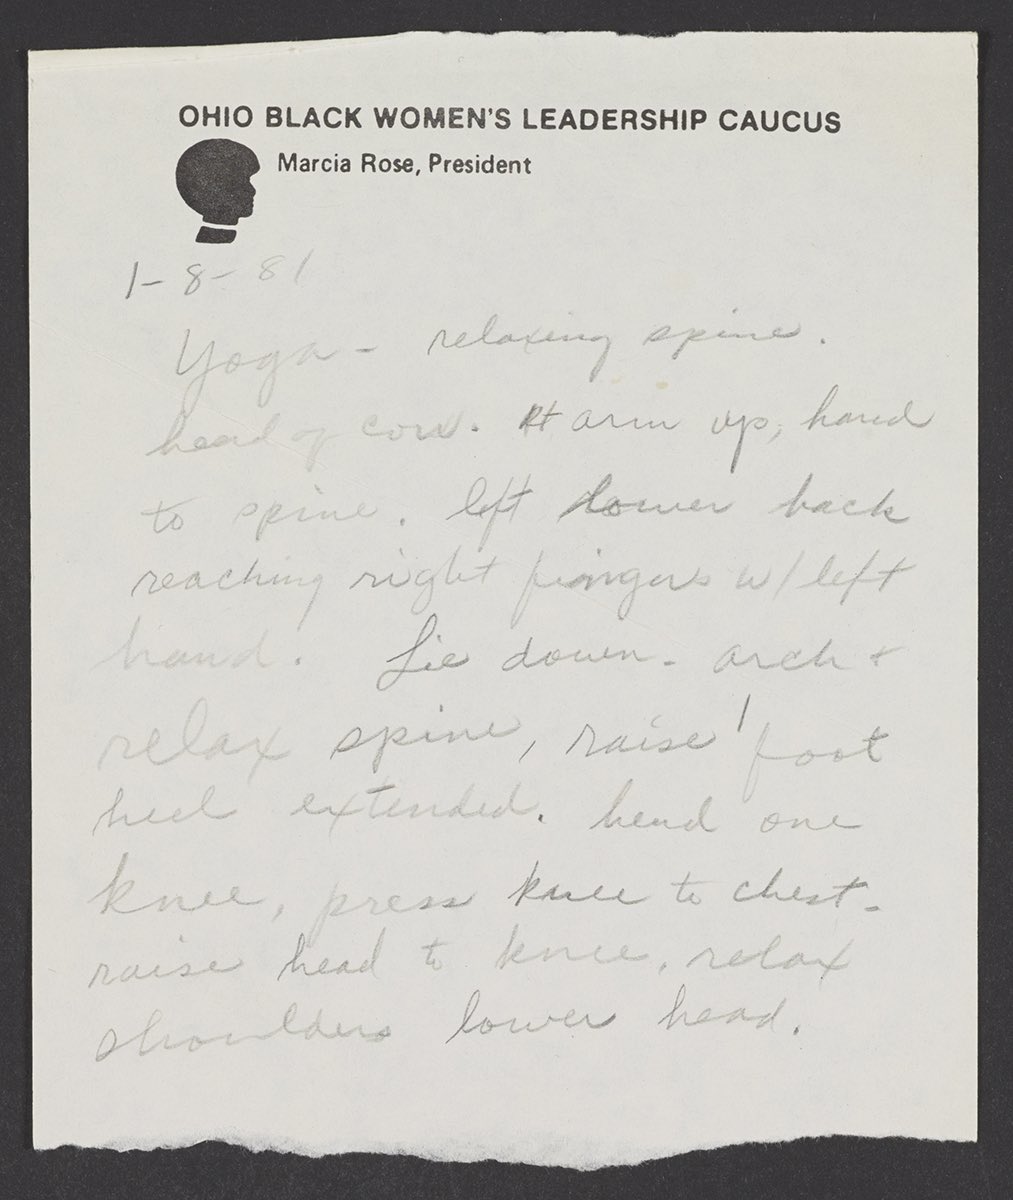 OHIO BLACK WOMEN'S LEADERSHIP CAUCUS
Marcia Rose, President
1-8-81
Yoga - relaxing spine.
head of cow. Rt arm up, hand
to spine. left lower back
reaching right fingers w/ left
hand. Lie down - arch +
relax spine, raise 1 foot
heel extended. bend one
knee, press knee to chest -
raise head to knee, relax
shoulders lower head.